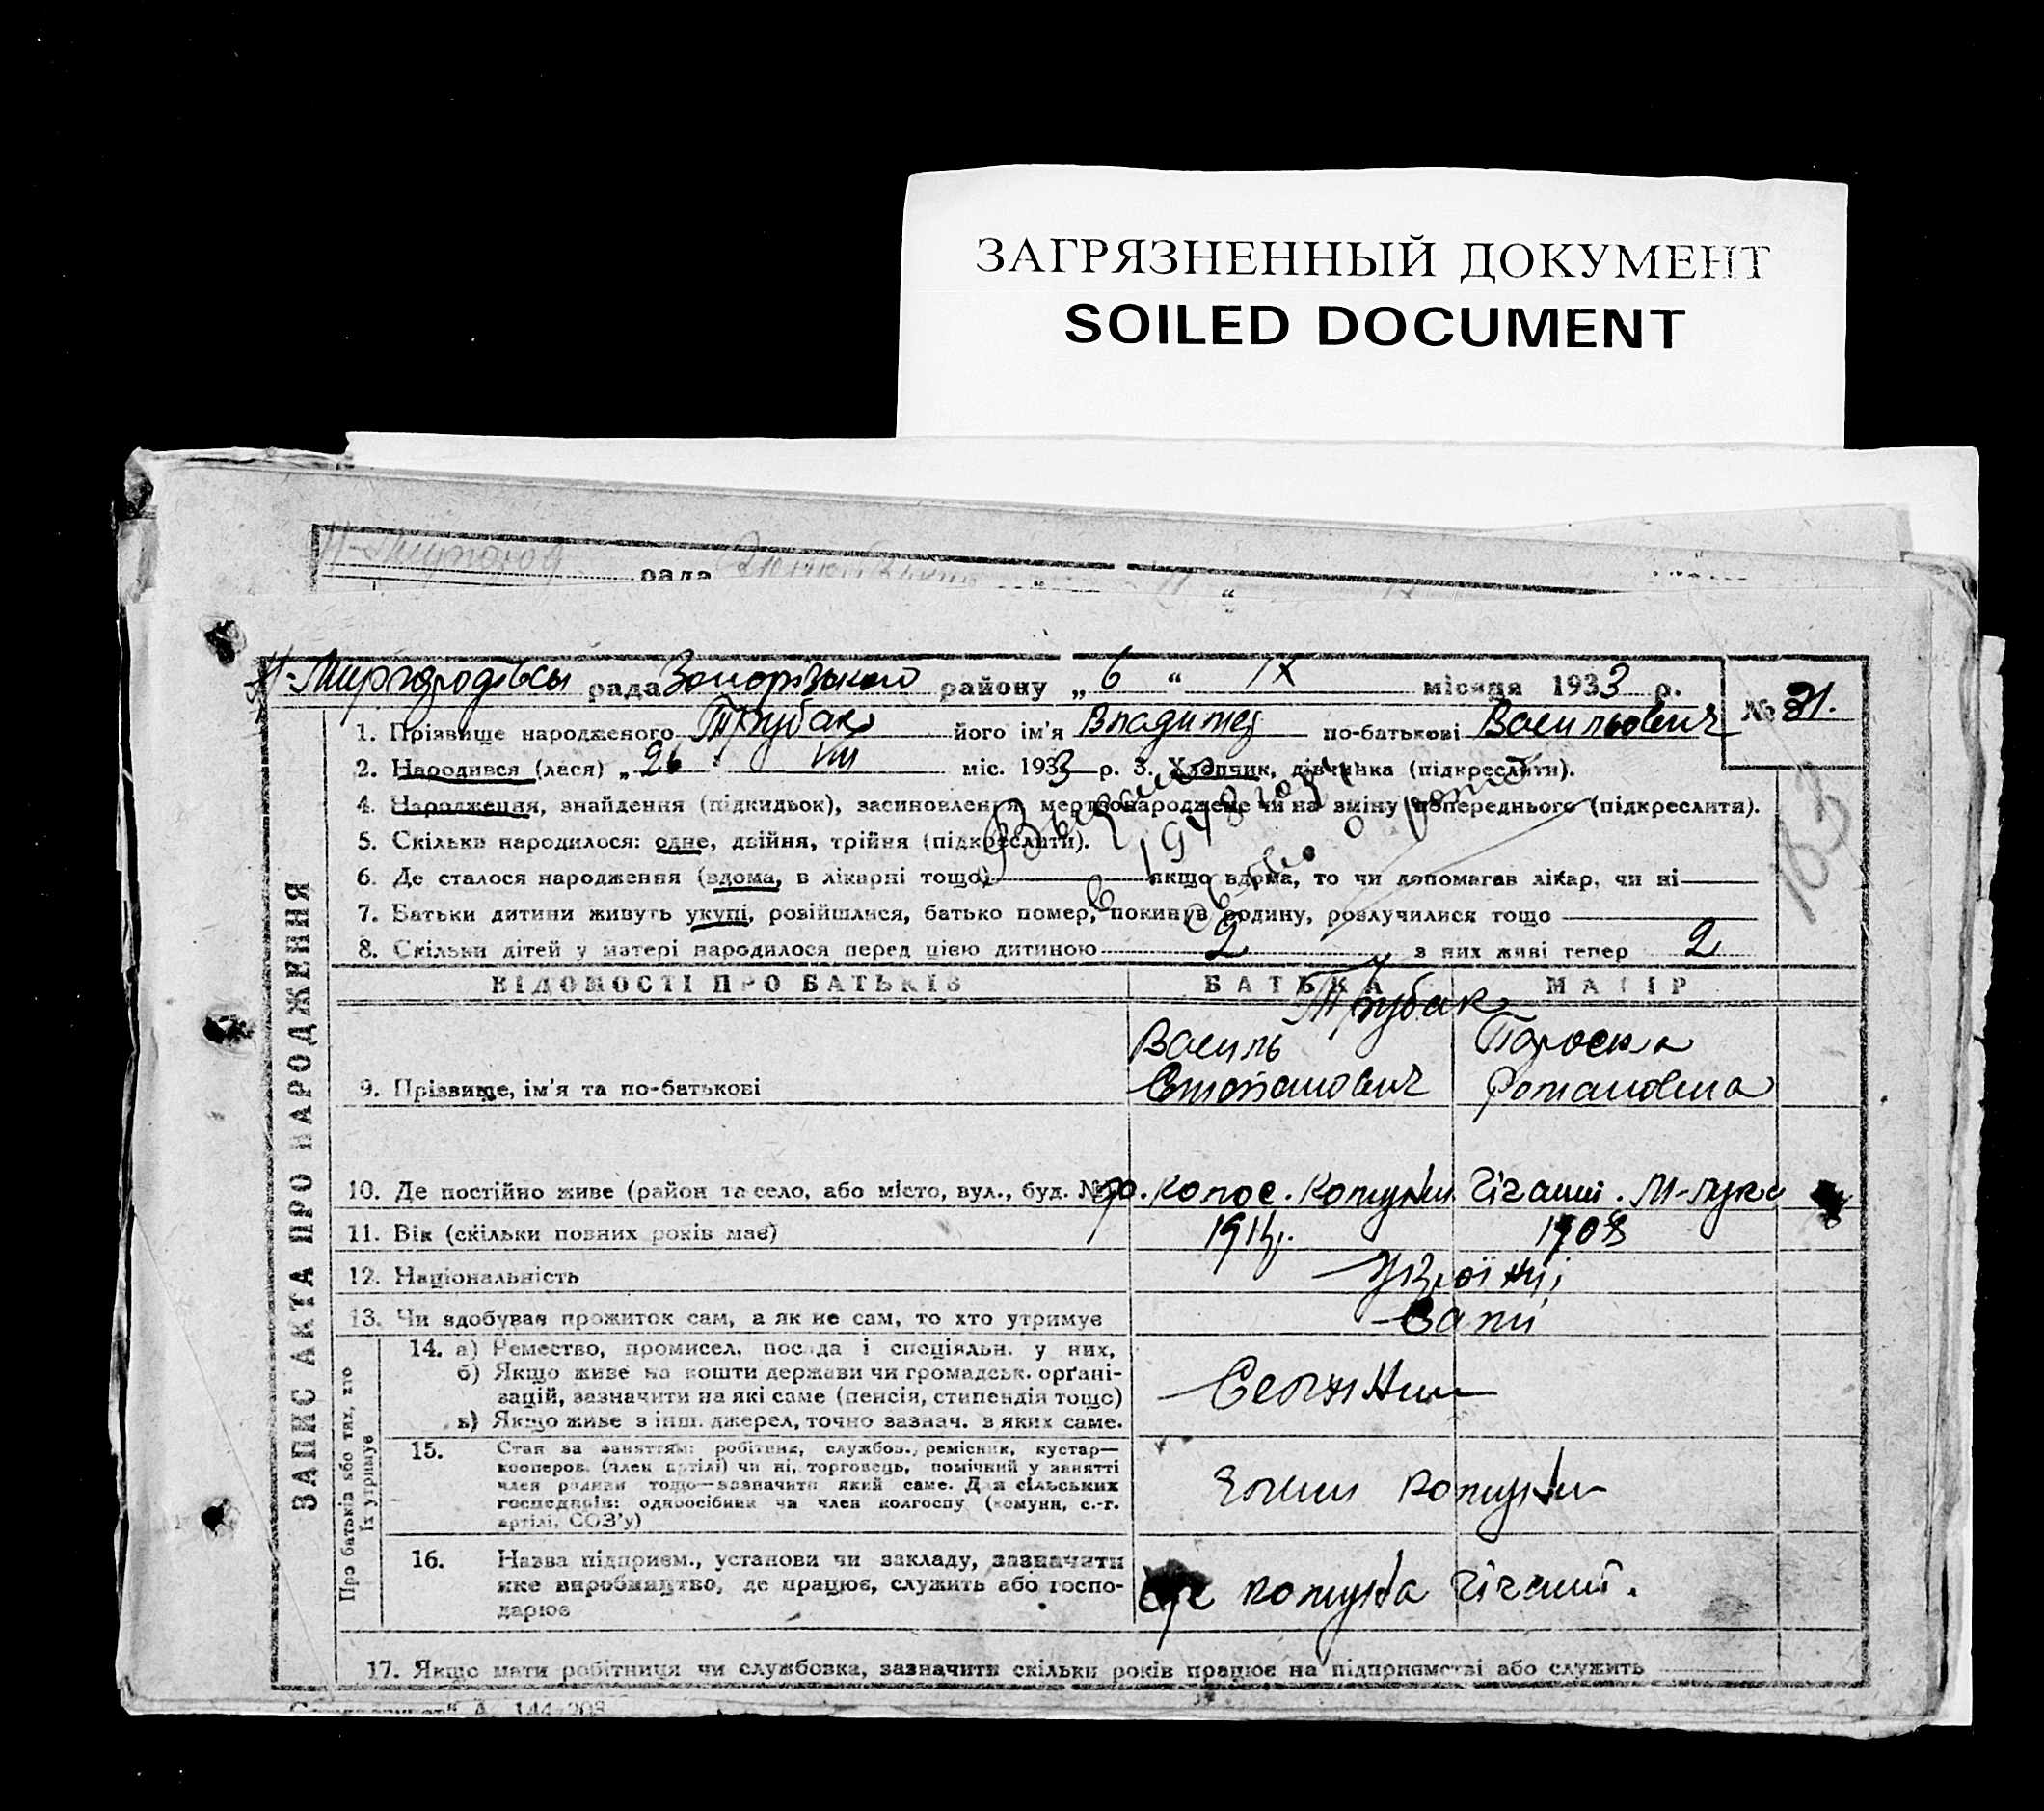 ЗАГРЯЗНЕННЫЙ ДОКУМЕНТ
SOILED DOCUMENT
рада
Н-Миргородвсы рада Запорізького району „ 6 “ ІХ місяця 1933 р.
№ 21.
1. Прізвище народженого Трубак його ім'я по-батькові Васильович
2. Народився (лася) „ 26 VIII міс. 1933 р. 3. Хлопчик, дівчинка (підкреслити).
4. Народження, знайдення (підкидьок), засиновлення, мертвонароджене чи на зміну попереднього (підкреслити).
5. Скільки народилося: одне, двійня, трійня (підкреслити).
6. Де сталося народження (вдома, в лікарні тощо) якщо вдома, то чи допомагав лікар, чи ні
7. Батьки дитини живуть укупі, розійшлися, батько помер, покинув родину, розлучилися тощо
8. Скільки дітей у матері народилося перед цією дитиною 2 з них живі тепер 2
ВІДОМОСТІ ПРО БАТЬКІВ БАТЬКА МАТІР
Трубак
Василь Параска
9. Прізвище, ім'я та по-батькові Степанович Романовна
10. Де постійно живе (район та село, або місто, вул., буд. №
11. Вік (скільки повних років має) 1914р. 1908
12. Національність Українці
13. Чи здобував прожиток сам, а як не сам, то хто утримує Самі
14. а) Ремество, промисел, посада і спеціяльн. у них,
б) Якщо живе на кошти держави чи громадськ. орґані-
зацій, зазначити на які саме (пенсія, стипендія тощо)
в) Якщо живе з інш. джерел, точно зазнач. з яких саме.
15. Стан за заняттям: робітник, службов., ремісник, кустар—
кооперов. (член артілі) чи ні, торговець, помічний у занятті
член родини тощо—зазначити який саме. Для сільських
господарів: одноосібник чи член колгоспу (комуни, с.-г.
артілі, СОЗ'у)
Члени комуни
16. Назва підприєм., установи чи закладу, зазначити
яке виробництво, де працює, служить або госпо-
дарює
комуна Гігант.
17. Якщо мати робітниця чи службовка, зазначити скільки років працює на підприємстві або служить
ЗАПИС АКТА ПРО НАРОДЖЕННЯ
Про батьків або тих, хто
їх утримує